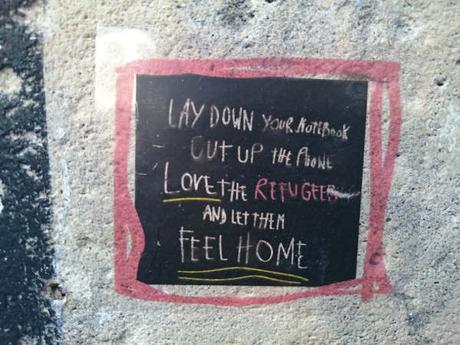 LAY DOWN YOUR NOTEBOOK
CUT UP THE PHONE
LOVE THE REFUGEES
AND LET THEM
FEEL HOME